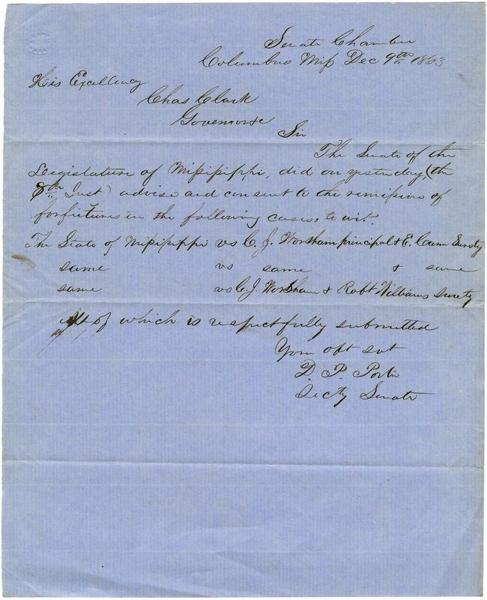 Senate Chamber
Columbus Miss Dec 9th 1863
His Excellency
Chas Clark
Governor &c
Sir
The Senate of the
Legislature of Mississippi, did on yesterday, (the
8th Inst) advise and consent to the remission of
forfeitures in the following cases, to wit:
The State of Mississippi vs C. J. Worsham principal & E. Surety
same vs same & same
same vs C. J. Worsham & Robt Williams Surety
All of which is respectfully submitted
Your obt svt
D. P. Porter
Secty Senate